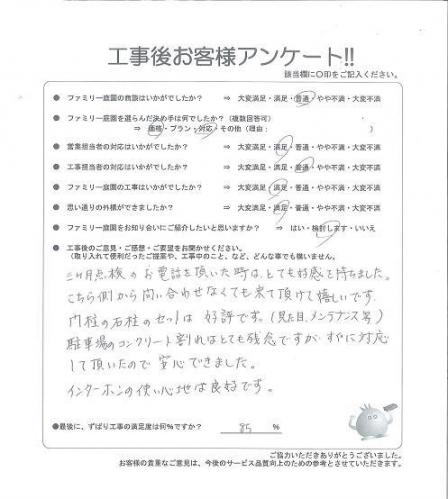 工事後お客様アンケート!!
該当欄に○印をご記入ください。
● ファミリー庭園の商談はいかがでしたか? ⇒ 大変満足・満足・普通・やや不満・大変不満
● ファミリー庭園を選らんだ決め手は何でしたか?(複数回答可)
⇒ 価格・プラン・対応・その他(理由: )
● 営業担当者の対応はいかがでしたか? ⇒ 大変満足・満足・普通・やや不満・大変不満
● 工事担当者の対応はいかがでしたか? ⇒ 大変満足・満足・普通・やや不満・大変不満
● ファミリー庭園の工事はいかがでしたか? ⇒ 大変満足・満足・普通・やや不満・大変不満
● 思い通りの外構ができましたか? ⇒ 大変満足・満足・普通・やや不満・大変不満
● ファミリー庭園をお知り合いにご紹介したいと思いますか? ⇒ はい・検討します・いいえ
● 工事後のご意見・ご感想・ご要望をお聞かせください。
(取り入れて便利だったご提案や、工事中のこと、など、どんな事でも構いません。
三ヶ月点検のお電話を頂いた時は、とても好感を持ちました。
こちら側から問い合わせなくても来て頂けて嬉しいです。
門柱の石柱のセットは 好評です。(見た目、メンテナンス等)
駐車場のコンクリート割れはとても残念ですが、すぐに対応
して頂いたので 安心できました。
インターホンの使い心地は良好です。
●最後に、ずばり工事の満足度は何%ですか? 85 %
ご協力いただきありがとうございました。
お客様の貴重なご意見は、今後のサービス品質向上のための参考とさせていただきます。